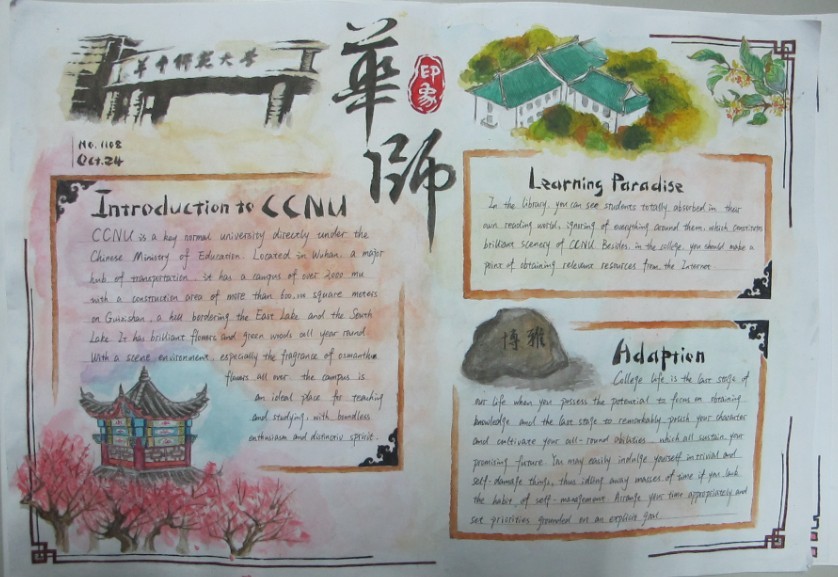 華中師範大学
華師
印象
No. 1108
Oct.24
Introduction to CCNU
CCNU is a key normal university directly under the
Chinese Ministry of Education. Located in Wuhan, a major
hub of transportation, it has a campus of over 2000 mu
with a construction area of more than square meters
on Guizishan, a hill bordering the East Lake and the South
Lake. It has brilliant flowers and green woods all year round.
With a scene environment, especially the fragrance of osmanthus
flowers all over the campus is
an ideal place for teaching
and studying, with boundless
enthusiasm and distinctiv spirit.
Learning Paradise
In the library, you can see students totally absorbed in their
own reading world, ignoring of everything around them, which constitutes
brilliant scenery of CCNU. Besides, in the college, you should make a
point of obtaining relevant resources from the Internet
博雅
Adaption
College life is the last stage of
our life when you possess the potential to focus on obtaining
knowledge and the last stage to remarkably polish your character
and cultivate your all-round abilities, which all sustain your
promising future. You may easily indulge yourself in trivial and
self-damage things, thus idling away masses of time if you lack
the habit of self-management. Arrange your time appropriately and
set priorities grounded on an explicit goal.